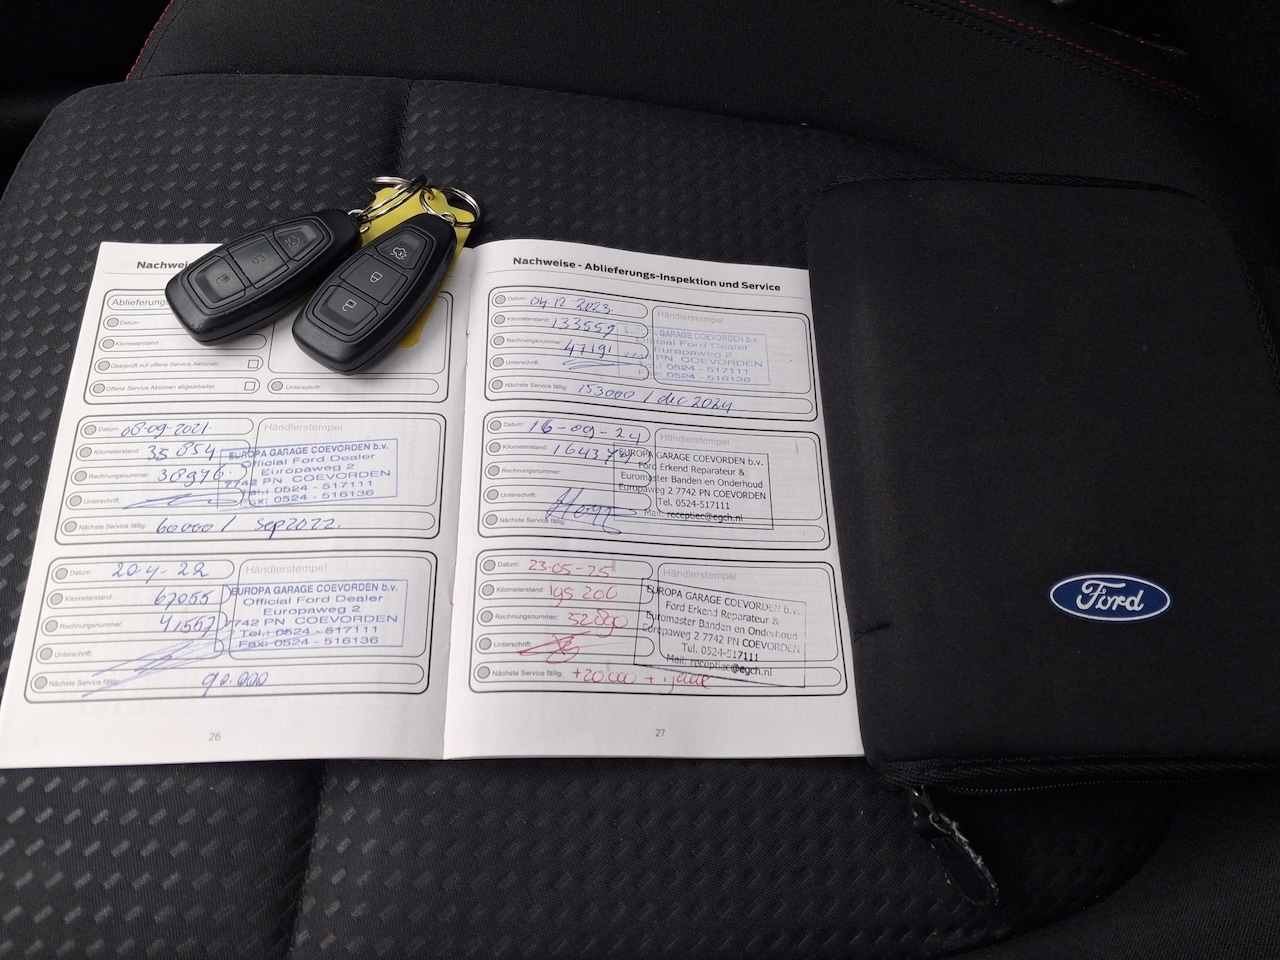 Nachweis
Ablieferungs
Datum:
Kilometerstand:
Überprüft auf offene Service Aktionen:
Offene Service Aktionen abgearbeitet:
Unterschrift:
Datum: 08-09-2021-
Händlerstempel
Kilometerstand: 35 854
Rechnungsnummer: 38976.
Unterschrift:
Nächste Service fällig: 60000 / sep 2022.
EUROPA GARAGE COEVORDEN b.v.
Official Ford Dealer
Europaweg 2
7742 PN COEVORDEN
Tel.: 0524 - 517111
Fax: 0524 - 516136
Datum: 20-4-22
Händlerstempel
Kilometerstand: 67055
Rechnungsnummer: 41557
Unterschrift:
Nächste Service fällig: 90.000
EUROPA GARAGE COEVORDEN b.v.
Official Ford Dealer
Europaweg 2
7742 PN COEVORDEN
Tel.: 0524 - 517111
Fax: 0524 - 516136
26
Nachweise - Ablieferungs-Inspektion und Service
Datum: 04 12 2023.
Händlerstempel
Kilometerstand: 133559
Rechnungsnummer: 47191
Unterschrift:
Nächste Service fällig: 153000 / dec 2024
GARAGE COEVORDEN b.v.
Official Ford Dealer
Europaweg 2
PN COEVORDEN
0524 - 517111
0524 - 516136
Datum: 16-09-24
Händlerstempel
Kilometerstand: 164374
Rechnungsnummer:
Unterschrift:
Nächste Service fällig:
EUROPA GARAGE COEVORDEN b.v.
Ford Erkend Reparateur &
Euromaster Banden en Onderhoud
Europaweg 2 7742 PN COEVORDEN
Tel. 0524-517111
Mail: receptiec@egch.nl
Datum: 23-05-25
Händlerstempel
Kilometerstand: 195 206
Rechnungsnummer: 52890
Unterschrift:
Nächste Service fällig: +20.000 + 1 jaar
EUROPA GARAGE COEVORDEN b.v.
Ford Erkend Reparateur &
Euromaster Banden en Onderhoud
Europaweg 2 7742 PN COEVORDEN
Tel. 0524-517111
Mail: receptiec@egch.nl
27
Ford